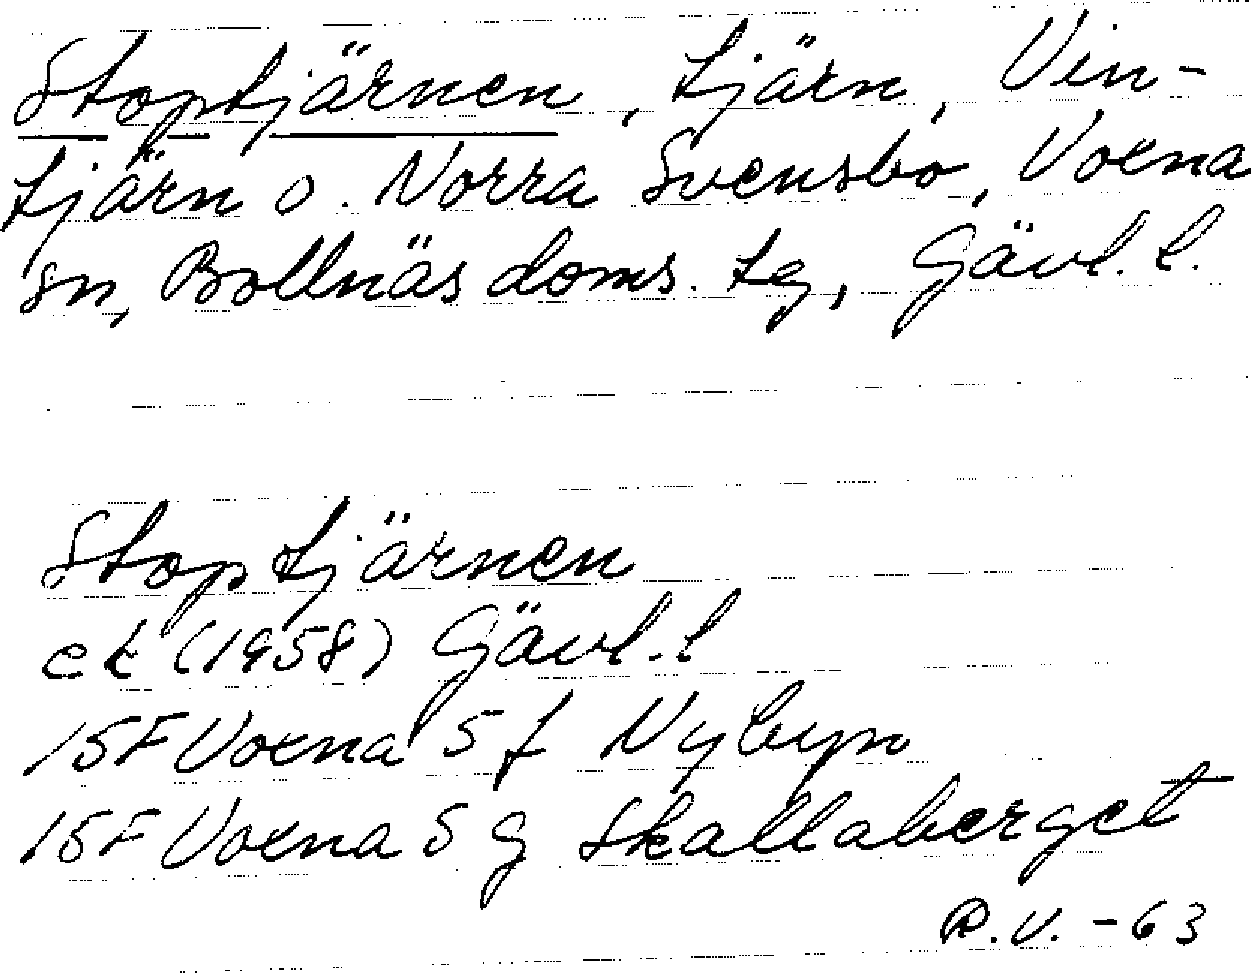 Stoptjärnen, tjärn, Vin-
tjärn o. Norra Svensbo, Voxna
sn, Bollnäs doms. tg, Gävl. l.
Stoptjärnen
ek (1958) Gävl. l
15F Voxna 5 f Nybyn
15F Voxna 5 g Skallaberget
R.V. - 63